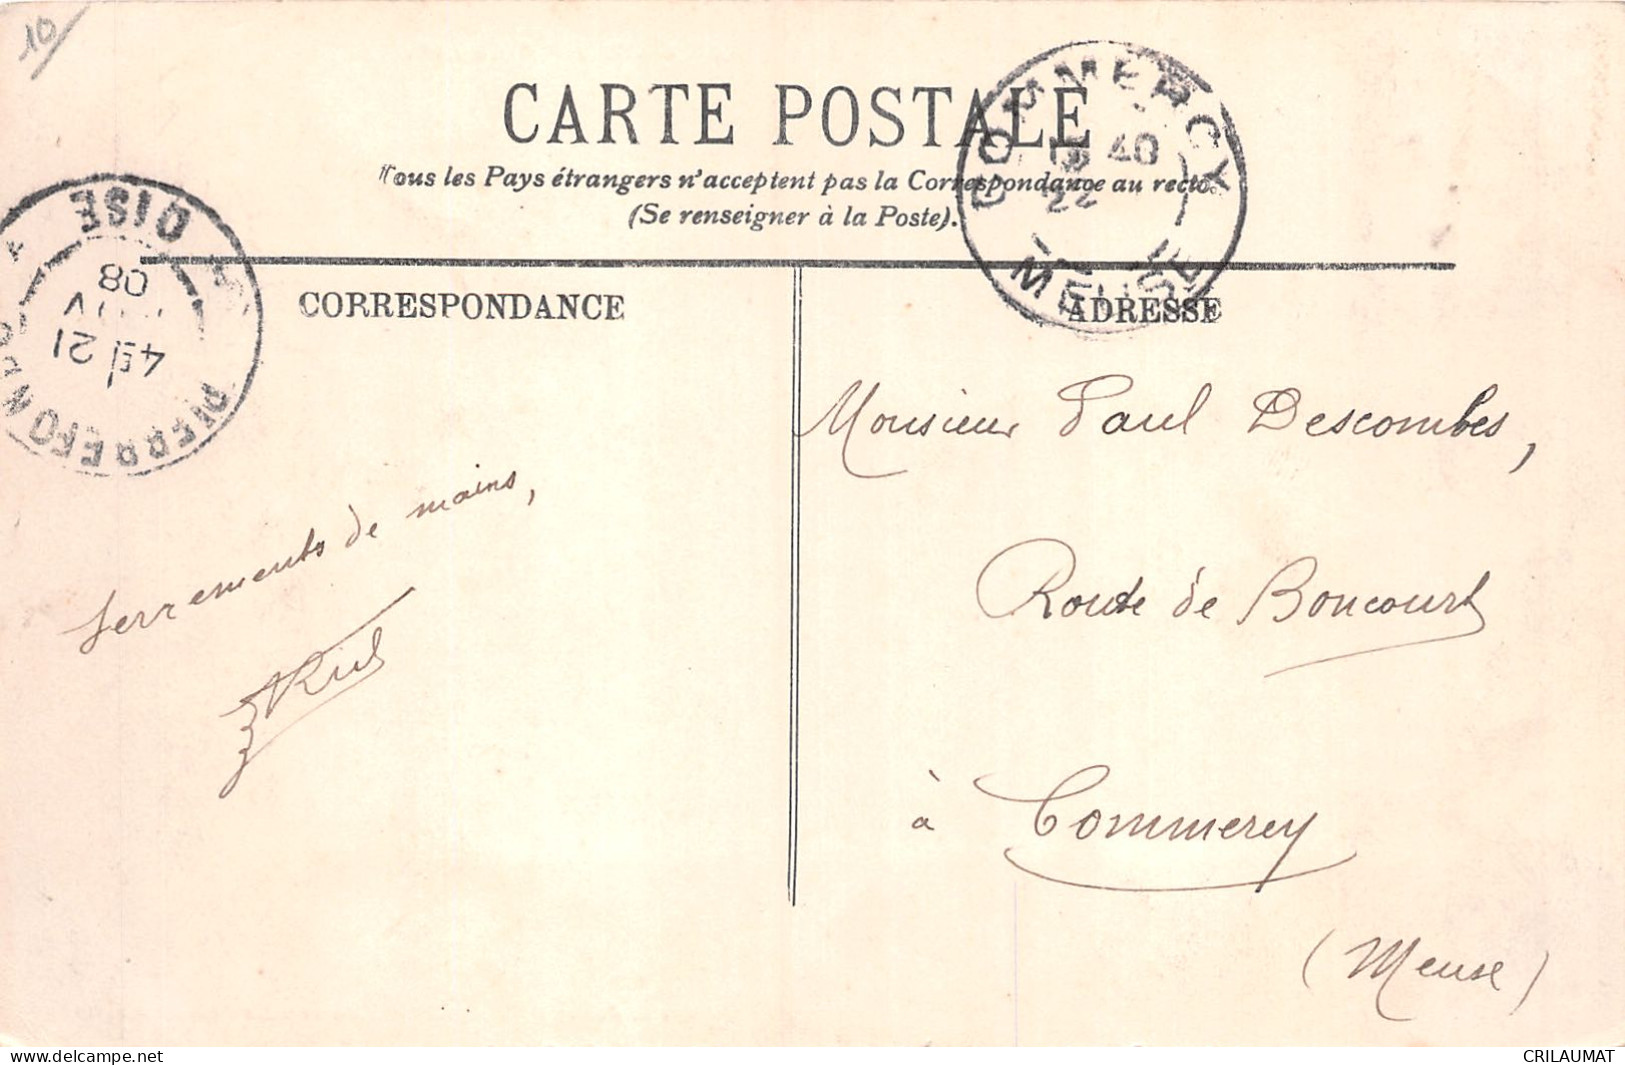 10
CARTE POSTALE
Tous les Pays étrangers n'acceptent pas la Correspondance au recto
(Se renseigner à la Poste).
COMMERCY
22
MEUSE
OISE
08
21
45
PIERREFONDS
CORRESPONDANCE
ADRESSE
Serrements de mains,
Monsieur Paul Descombes,
Route de Boncourt
à Commercy
(Meuse)
www.delcampe.net
CRILAUMAT